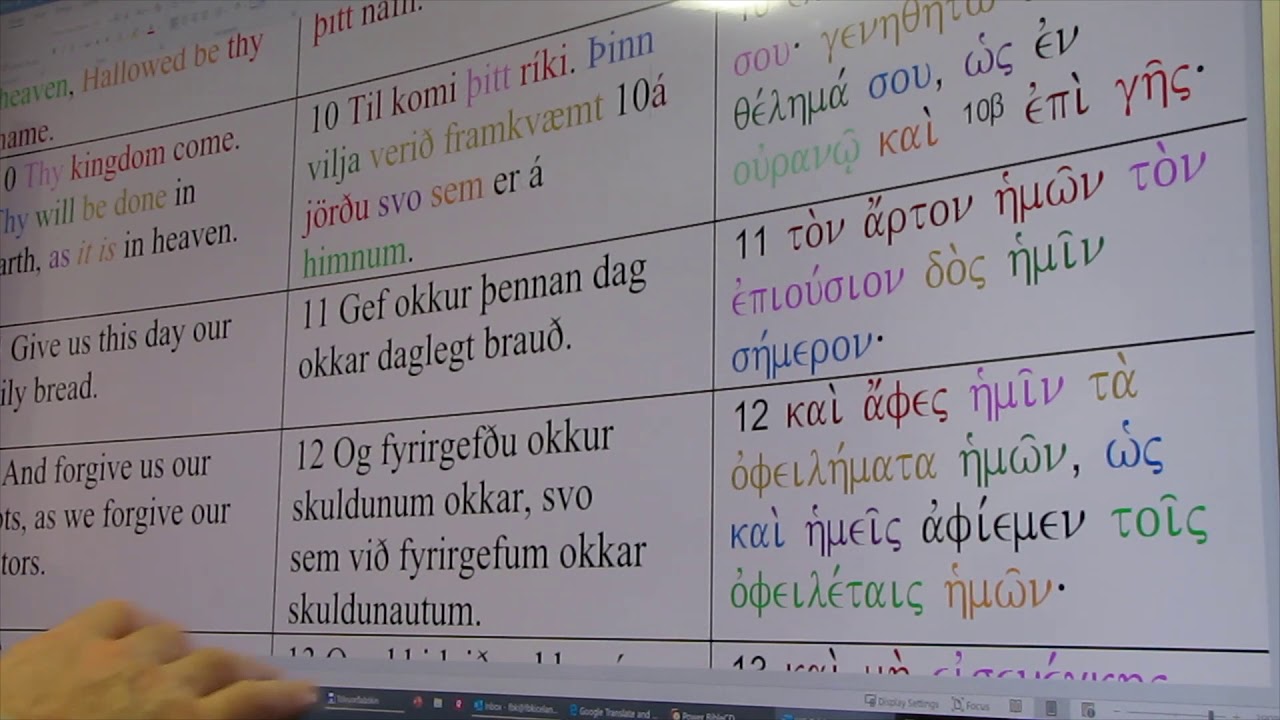 heaven, Hallowed be thy
name.
0 Thy kingdom come.
Thy will be done in
arth, as it is in heaven.
Give us this day our
ily bread.
And forgive us our
ts, as we forgive our
tors.
þitt nafn.
10 Til komi þitt ríki. Þinn
vilja verið framkvæmt 10á
jörðu svo sem er á
himnum.
11 Gef okkur þennan dag
okkar daglegt brauð.
12 Og fyrirgefðu okkur
skuldunum okkar, svo
sem við fyrirgefum okkar
skuldunautum.
σου· γενηθήτω
θέλημά σου, ὡς ἐν
οὐρανῷ καὶ 10β ἐπὶ γῆς·
11 τὸν ἄρτον ἡμῶν τὸν
ἐπιούσιον δὸς ἡμῖν
σήμερον·
12 καὶ ἄφες ἡμῖν τὰ
ὀφειλήματα ἡμῶν, ὡς
καὶ ἡμεῖς ἀφίεμεν τοῖς
ὀφειλέταις ἡμῶν·
Display Settings Focus
Google Translate and
Power BibleCD